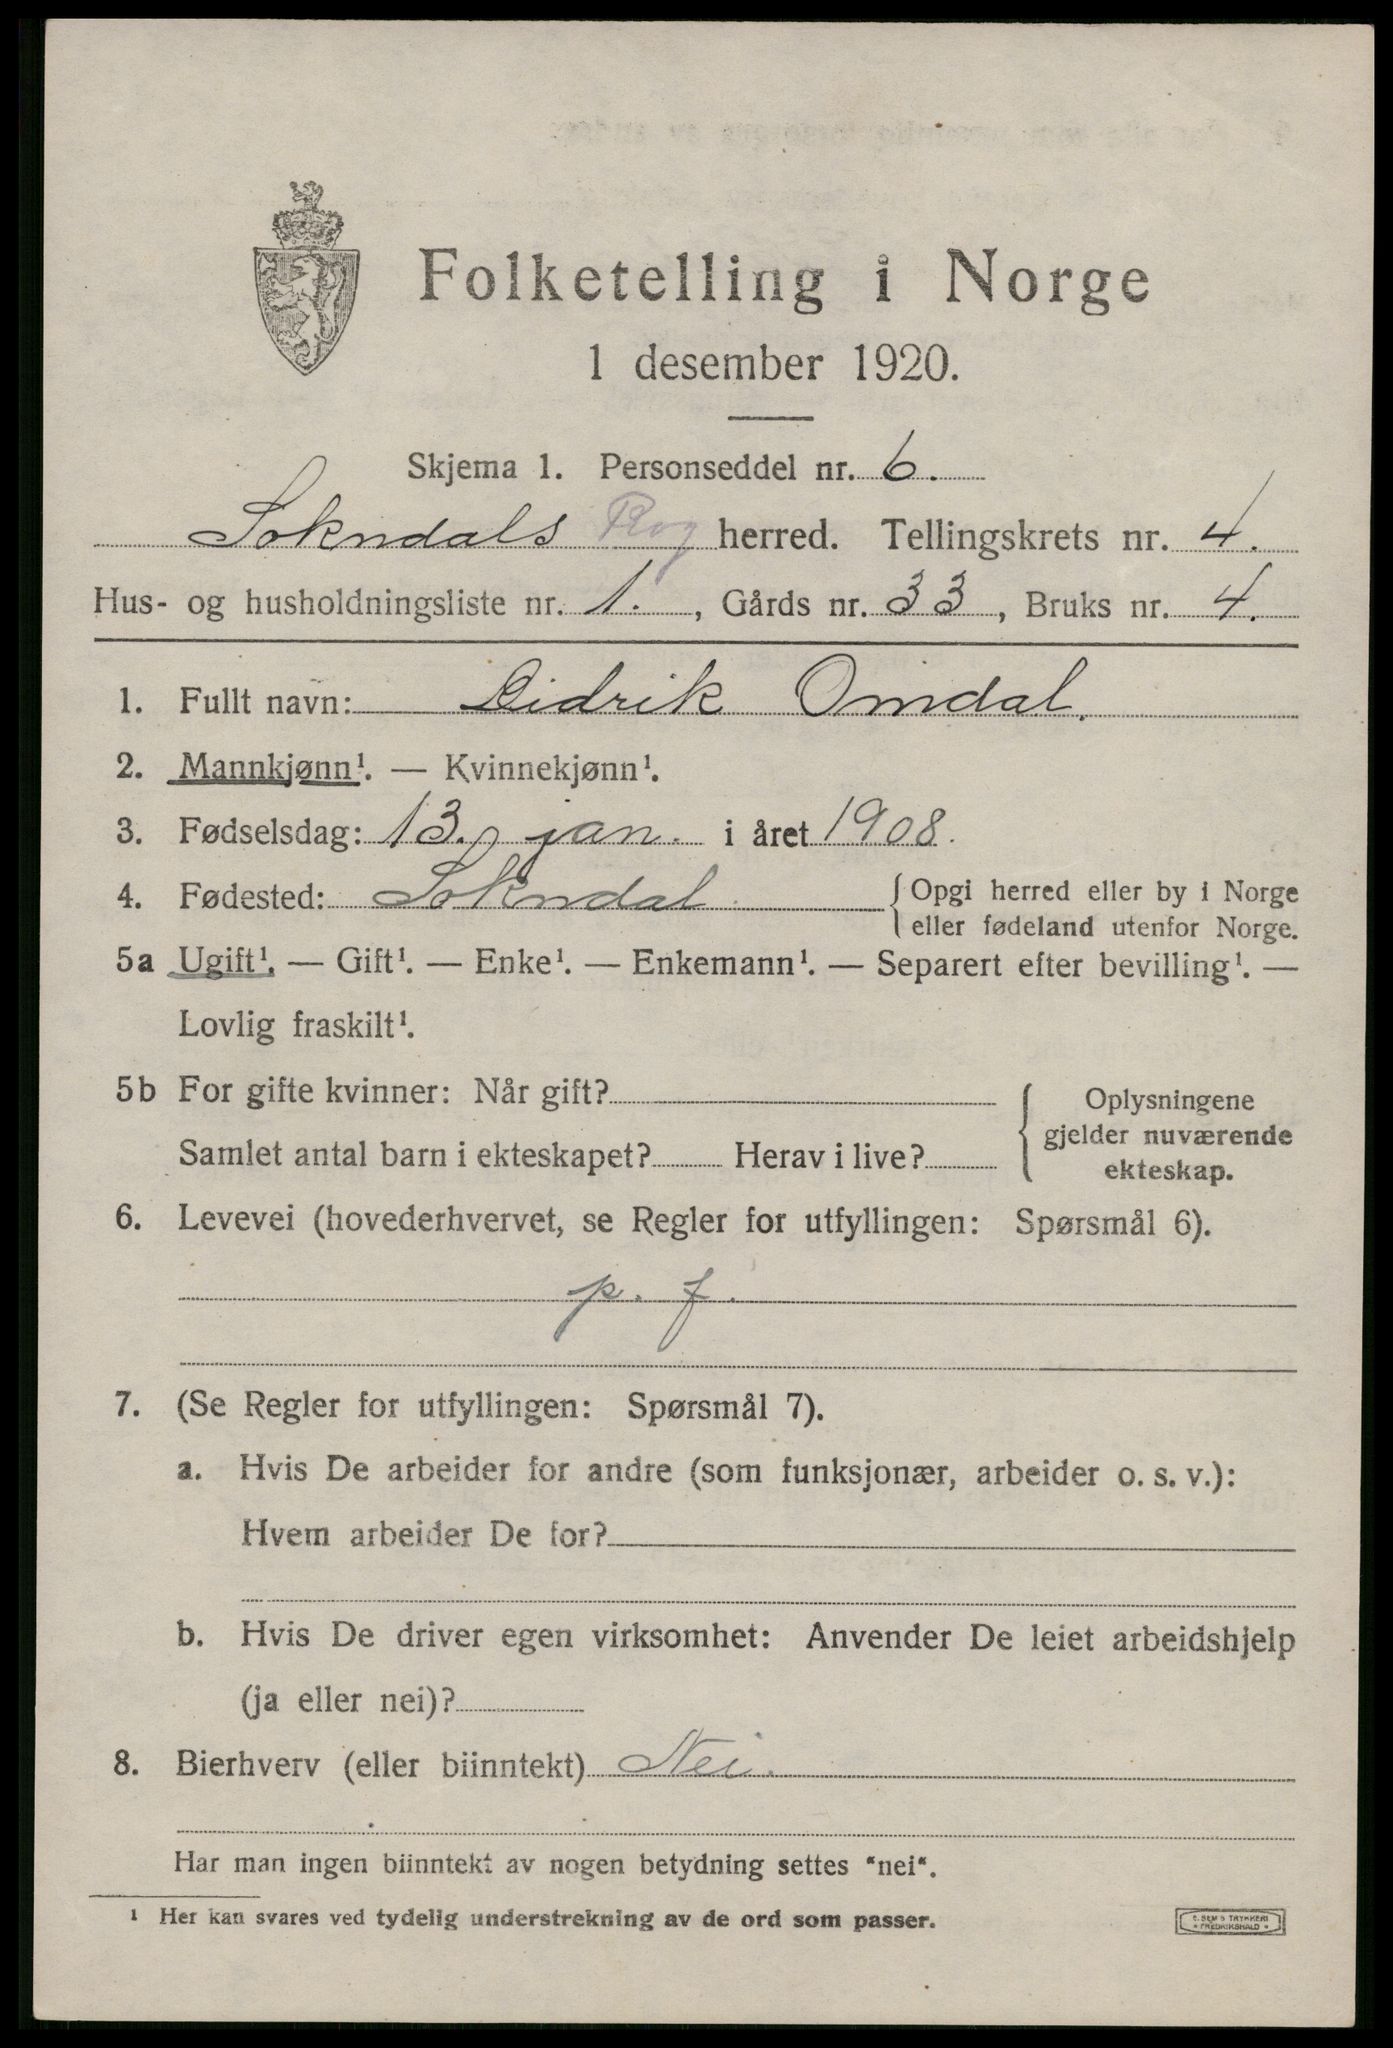 Folketelling i Norge
1 desember 1920.
Skjema 1. Personseddel nr. 6.
Sokndals Rog herred. Tellingskrets nr. 4.
Hus- og husholdningsliste nr. 1., Gårds nr. 33, Bruks nr. 4.
1. Fullt navn: Didrik Omdal.
2. Mannkjønn¹. — Kvinnekjønn¹.
3. Fødselsdag: 13. jan. i året 1908.
4. Fødested: Sokndal. { Opgi herred eller by i Norge
eller fødeland utenfor Norge.
5a Ugift¹. — Gift¹. — Enke¹. — Enkemann¹. — Separert efter bevilling¹. —
Lovlig fraskilt¹.
5b For gifte kvinner: Når gift?
Samlet antal barn i ekteskapet? Herav i live?
Oplysningene
gjelder nuværende
ekteskap.
6. Levevei (hovederhvervet, se Regler for utfyllingen: Spørsmål 6).
p. f.
7. (Se Regler for utfyllingen: Spørsmål 7).
a. Hvis De arbeider for andre (som funksjonær, arbeider o. s. v.):
Hvem arbeider De for?
b. Hvis De driver egen virksomhet: Anvender De leiet arbeidshjelp
(ja eller nei)?
8. Bierhverv (eller biinntekt) Nei.
Har man ingen biinntekt av nogen betydning settes "nei".
¹ Her kan svares ved tydelig understrekning av de ord som passer.
E. SEM'S TRYKKERI
* FREDRIKSHALD *